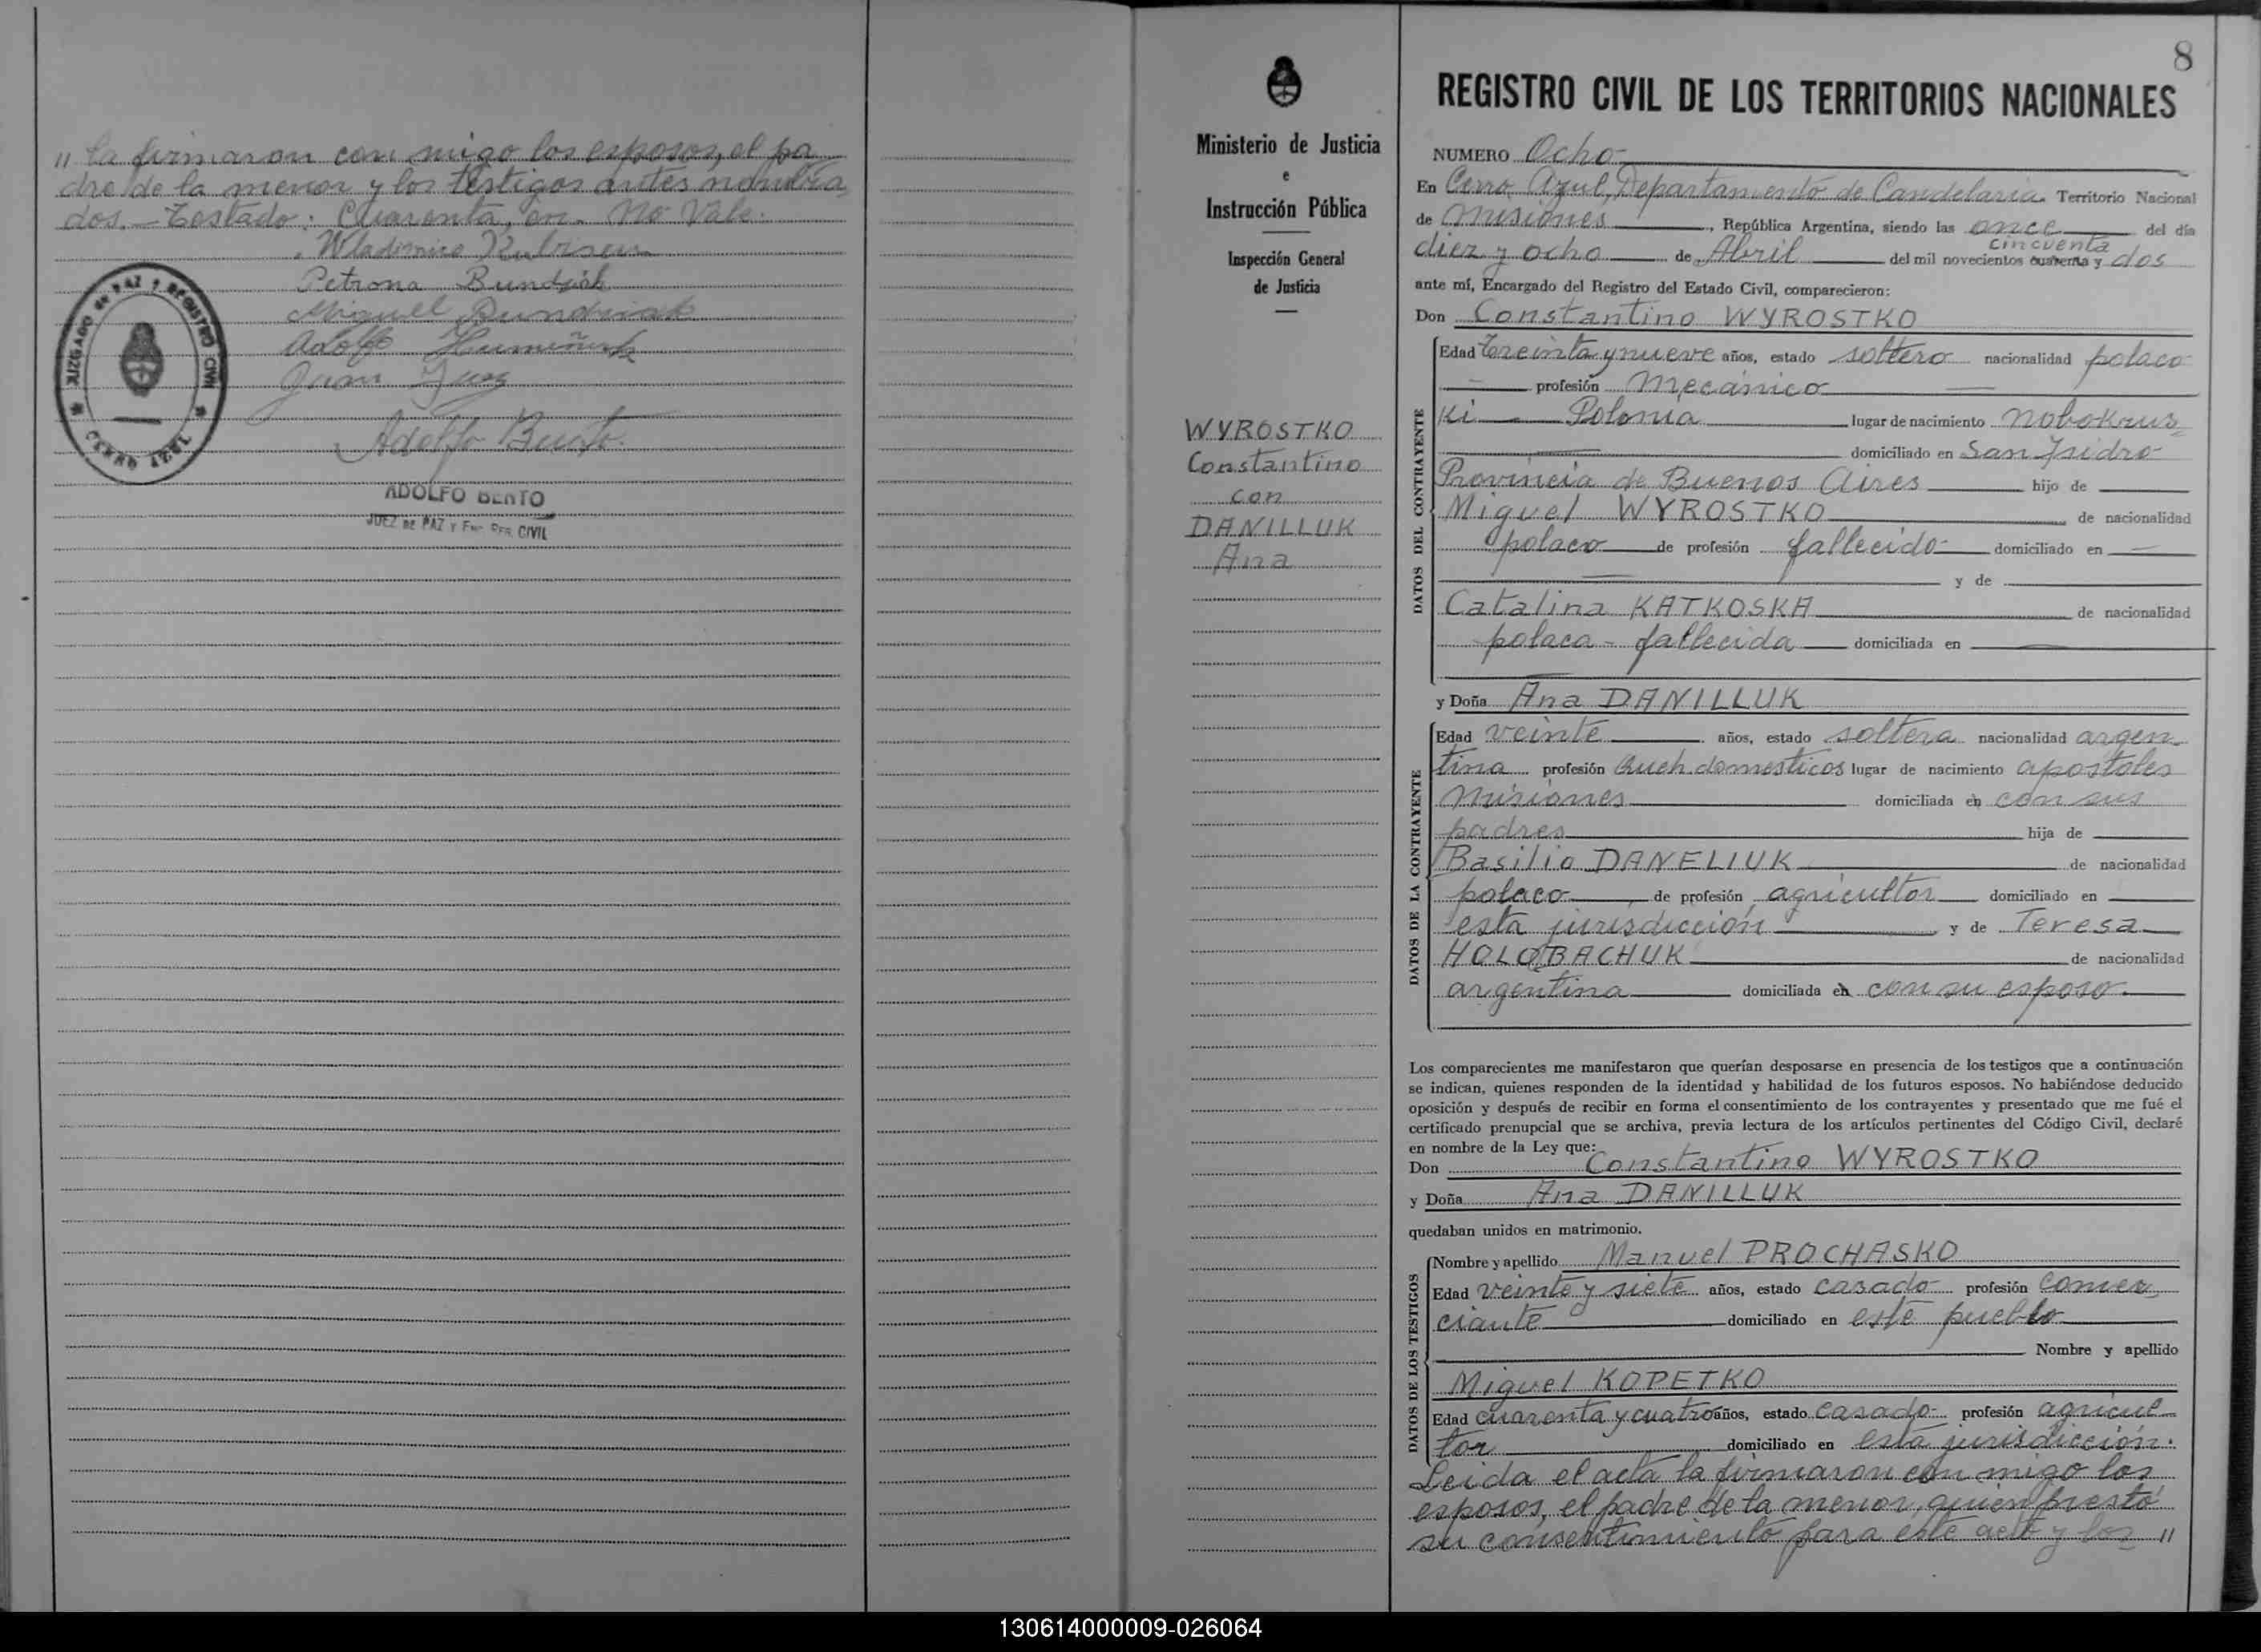 " la firmaron con migo los esposos, el pa
dre de la menor y los testigos antes nombra
dos.- Testado: Cuarenta, en- No Vale.
Petrona Bundziak
Miguel Bundziak
Adolfo
Juan
JUZGADO de PAZ Y REGISTRO CIVIL
CERRO AZUL
Adolfo Bento
ADOLFO BENTO
JUEZ DE PAZ Y ENC. REG. CIVIL
Ministerio de Justicia
e
Instrucción Pública
Inspección General
de Justicia
WYROSTKO
Constantino
con
DANILLUK
Ana
8
REGISTRO CIVIL DE LOS TERRITORIOS NACIONALES
NUMERO Ocho
En Cerro Azul, Departamento de Candelaria Territorio Nacional
de Misiones, República Argentina, siendo las once del día
cincuenta
diez y ocho de Abril del mil novecientos cuarenta y dos
ante mí, Encargado del Registro del Estado Civil, comparecieron:
Don Constantino WYROSTKO
DATOS DEL CONTRAYENTE
Edad Treinta y nueve años, estado soltero nacionalidad polaco
profesión Mecánico
ki - Polonia lugar de nacimiento Nobokrus=
domiciliado en San Isidro
Provincia de Buenos Aires hijo de
Miguel WYROSTKO de nacionalidad
polaco de profesión fallecido domiciliado en
y de
Catalina KATKOSKA de nacionalidad
polaca - fallecida domiciliada en
y Doña Ana DANILLUK
DATOS DE LA CONTRAYENTE
Edad veinte años, estado soltera nacionalidad argen-
tina profesión Queh. domesticos lugar de nacimiento apostoles
Misiones domiciliada en con sus
padres hija de
Basilio DANELIUK de nacionalidad
polaco de profesión agricultor domiciliado en
esta jurisdicción y de Teresa
HOLOBACHUK de nacionalidad
argentina domiciliada en con su esposo
Los comparecientes me manifestaron que querían desposarse en presencia de los testigos que a continuación
se indican, quienes responden de la identidad y habilidad de los futuros esposos. No habiéndose deducido
oposición y después de recibir en forma el consentimiento de los contrayentes y presentado que me fué el
certificado prenupcial que se archiva, previa lectura de los artículos pertinentes del Código Civil, declaré
en nombre de la Ley que:
Don Constantino WYROSTKO
y Doña Ana DANILLUK
quedaban unidos en matrimonio.
DATOS DE LOS TESTIGOS
Nombre y apellido Manuel PROCHASKO
Edad veinte y siete años, estado casado profesión comer
ciante domiciliado en este pueblo
Nombre y apellido
Miguel KOPETKO
Edad cuarenta y cuatro años, estado casado profesión agricul-
tor domiciliado en esta jurisdicción.
Leida el acta la firmaron con migo los
esposos, el padre de la menor, quien prestó
su consentimiento para este acto y los "
130614000009-026064